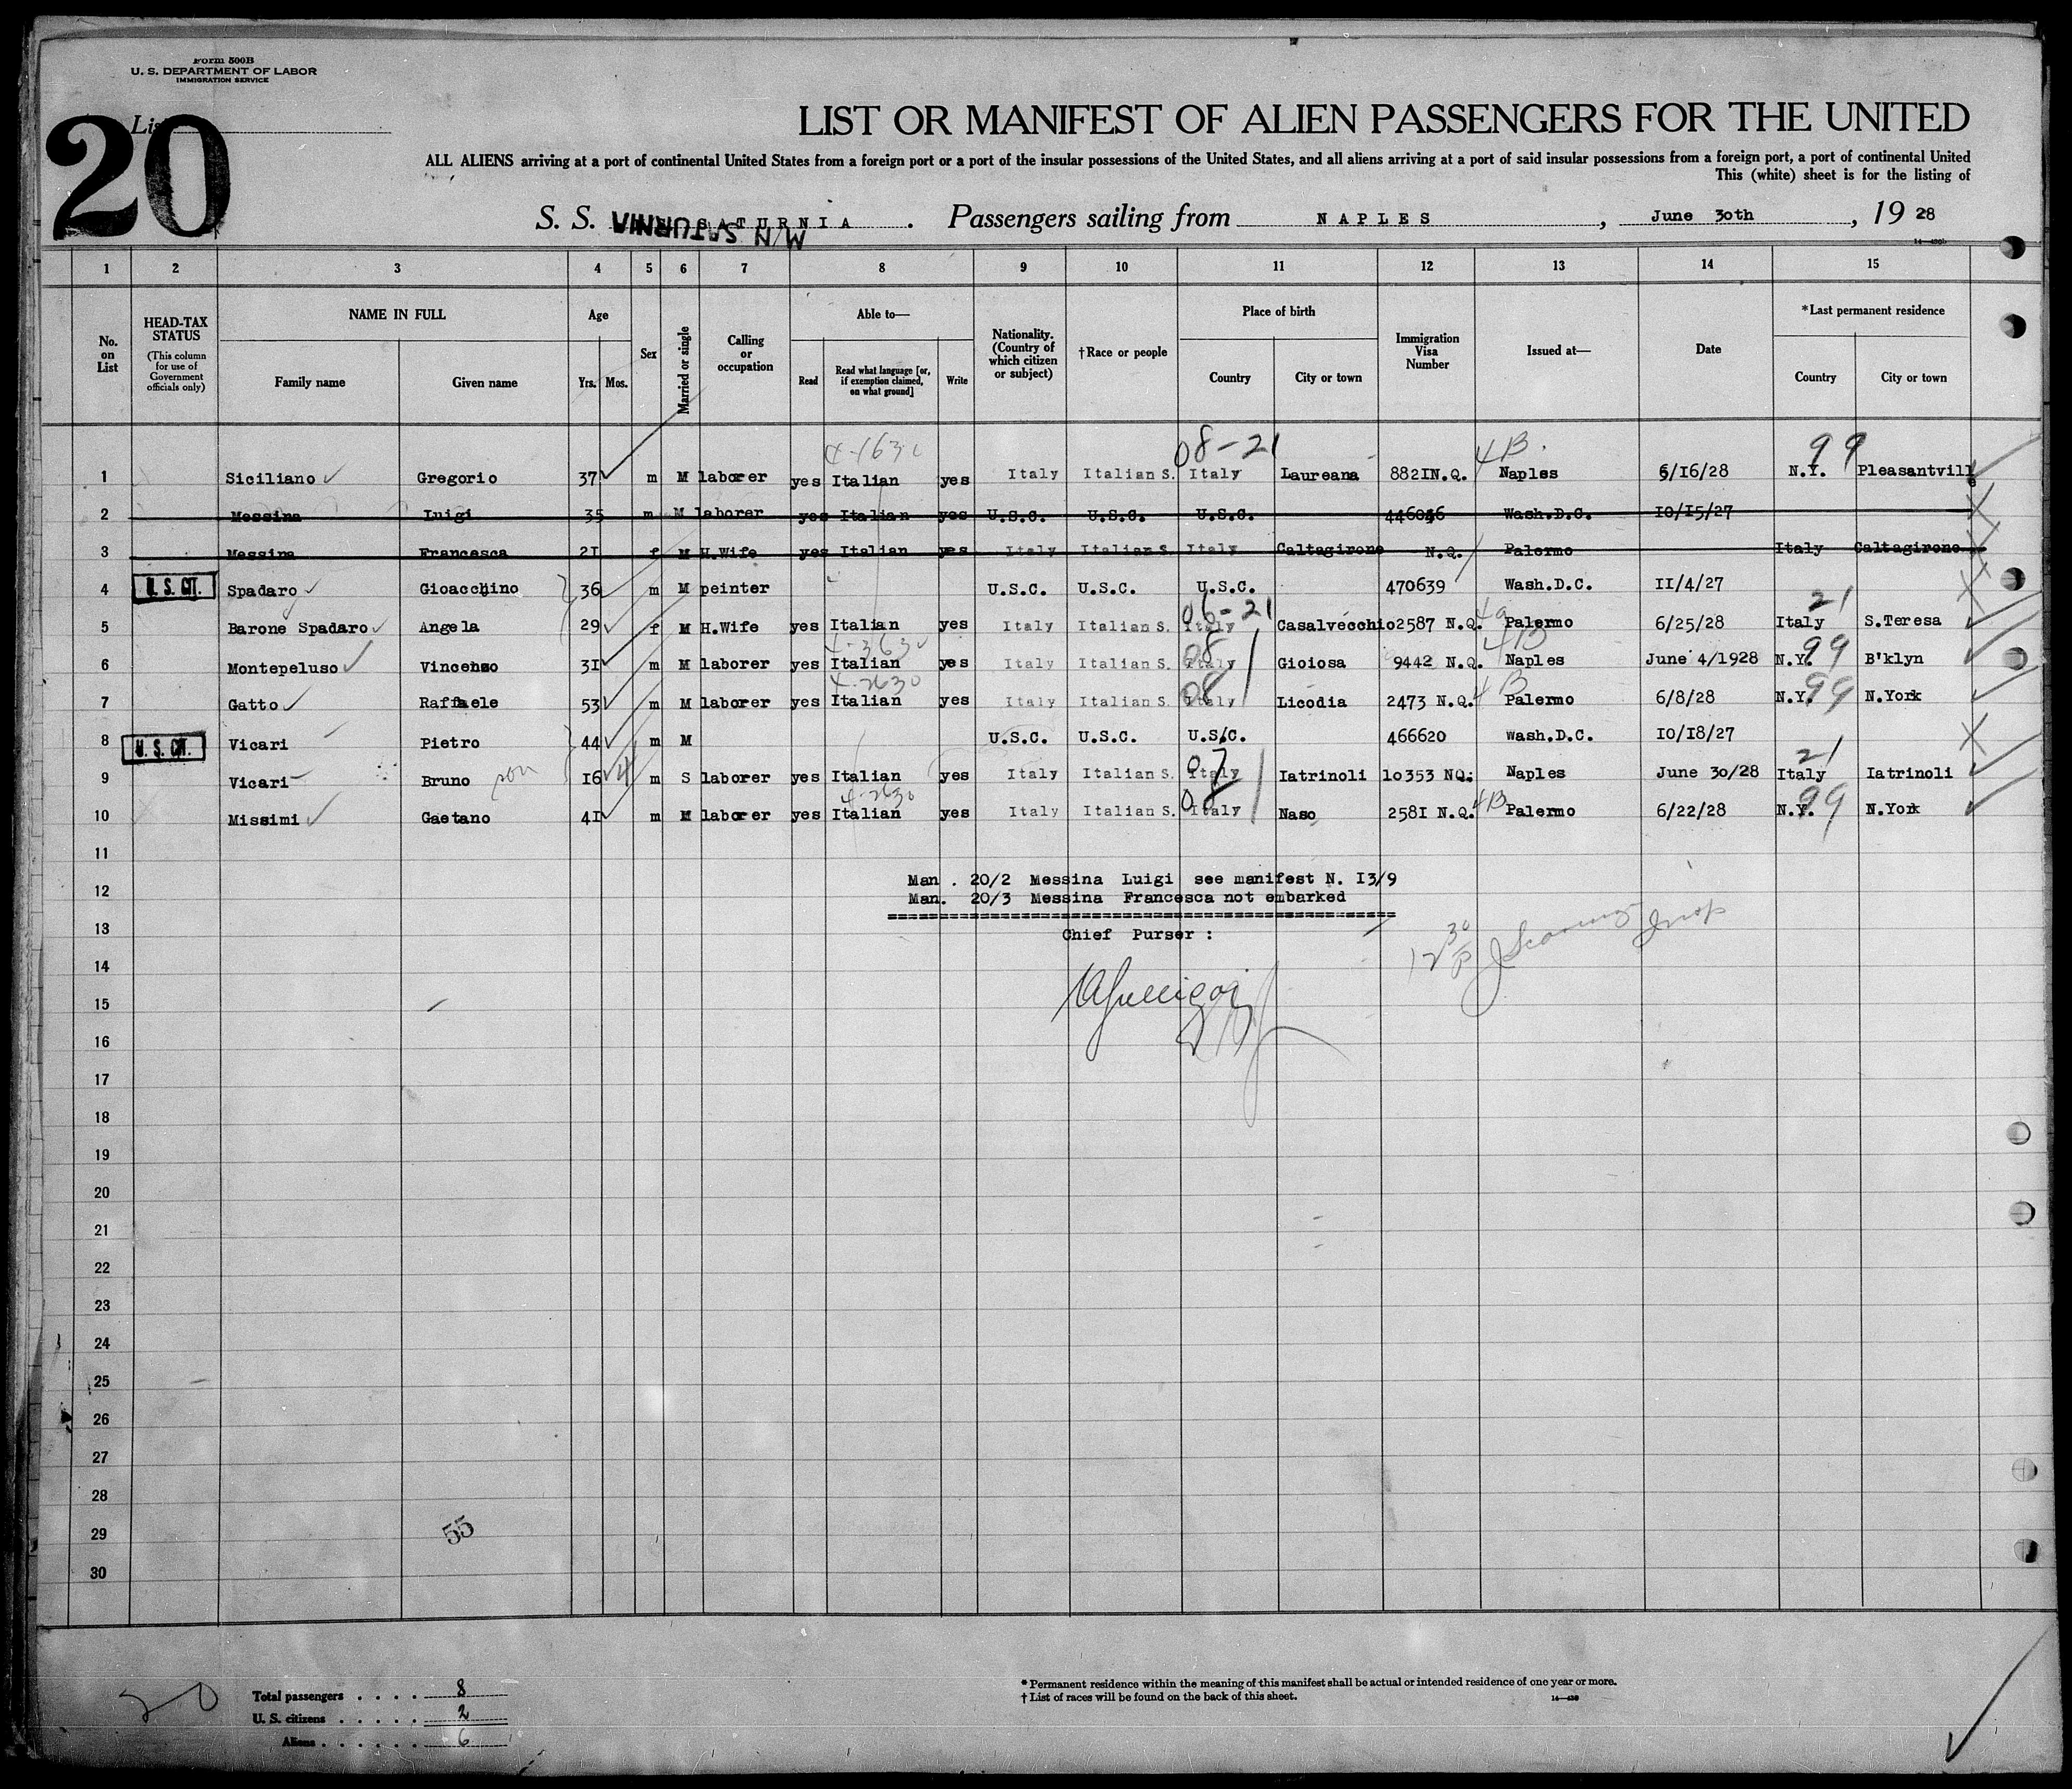 Form 500B
U. S. DEPARTMENT OF LABOR
IMMIGRATION SERVICE
20
List
LIST OR MANIFEST OF ALIEN PASSENGERS FOR THE UNITED
ALL ALIENS arriving at a port of continental United States from a foreign port or a port of the insular possessions of the United States, and all aliens arriving at a port of said insular possessions from a foreign port, a port of continental United
This (white) sheet is for the listing of
S. S. SATURNIA . Passengers sailing from NAPLES , June 30th , 19 28
M/N SATURNIA
1 2 3 4 5 6 7 8 9 10 11 12 13 14 15
No. on List
HEAD-TAX STATUS
(This column for use of Government officials only)
NAME IN FULL
Family name
Given name
Age
Yrs. Mos.
Sex
Married or single
Calling or occupation
Able to—
Read
Read what language [or, if exemption claimed, on what ground]
Write
Nationality. (Country of which citizen or subject)
†Race or people
Place of birth
Country
City or town
Immigration Visa Number
Issued at—
Date
*Last permanent residence
Country
City or town
08-21 4B. 99
1 Siciliano Gregorio 37 m M laborer yes Italian yes Italy Italian S. Italy Laureana 882I N.Q. Naples 6/16/28 N.Y. Pleasantville
2 Messina Luigi 35 m M laborer yes Italian yes U.S.C. U.S.C. U.S.C. Wash.D.C. IO/I5/27
3 Messina Francesca 2I f M H.Wife yes Italian yes Italy Italian S. Italy Caltagirone N.Q. Palermo Italy Caltagirone
4 U. S. CIT. Spadaro Gioacchino 36 m M peinter U.S.C. U.S.C. U.S.C. 470639 Wash.D.C. II/4/27
06-21 21
5 Barone Spadaro Angela 29 f M H.Wife yes Italian yes Italy Italian S. Italy Casalvecchio 2587 N.Q. Palermo 6/25/28 Italy S.Teresa
4-3630 08 4B 99
6 Montepeluso Vincenso 3I m M laborer yes Italian yes Italy Italian S. Italy Gioiosa 9442 N.Q. Naples June 4/1928 N.Y. B'klyn
4-2630 08 4B 99
7 Gatto Raffaele 53 m M laborer yes Italian yes Italy Italian S. Italy Licodia 2473 N.Q. Palermo 6/8/28 N.Y. N.York
8 U. S. CIT. Vicari Pietro 44 m M U.S.C. U.S.C. U.S.C. 466620 Wash.D.C. IO/I8/27
07 21
9 Vicari Bruno son I6 4 m S laborer yes Italian yes Italy Italian S. Italy Iatrinoli IO353 NQ. Naples June 30/28 Italy Iatrinoli
4-2630 08 4B 99
10 Missimi Gaetano 4I m M laborer yes Italian yes Italy Italian S. Italy Naso 258I N.Q. Palermo 6/22/28 N.Y. N.York
11
Man . 20/2 Messina Luigi see manifest N. I3/9
12
Man. 20/3 Messina Francesca not embarked
13
Chief Purser :
14
15
16
17
18
19
20
21
22
23
24
25
26
27
28
29
55
30
20
Total passengers . . . . 8
U. S. citizens . . . . . 2
Aliens . . . . . . 6
* Permanent residence within the meaning of this manifest shall be actual or intended residence of one year or more.
† List of races will be found on the back of this sheet.